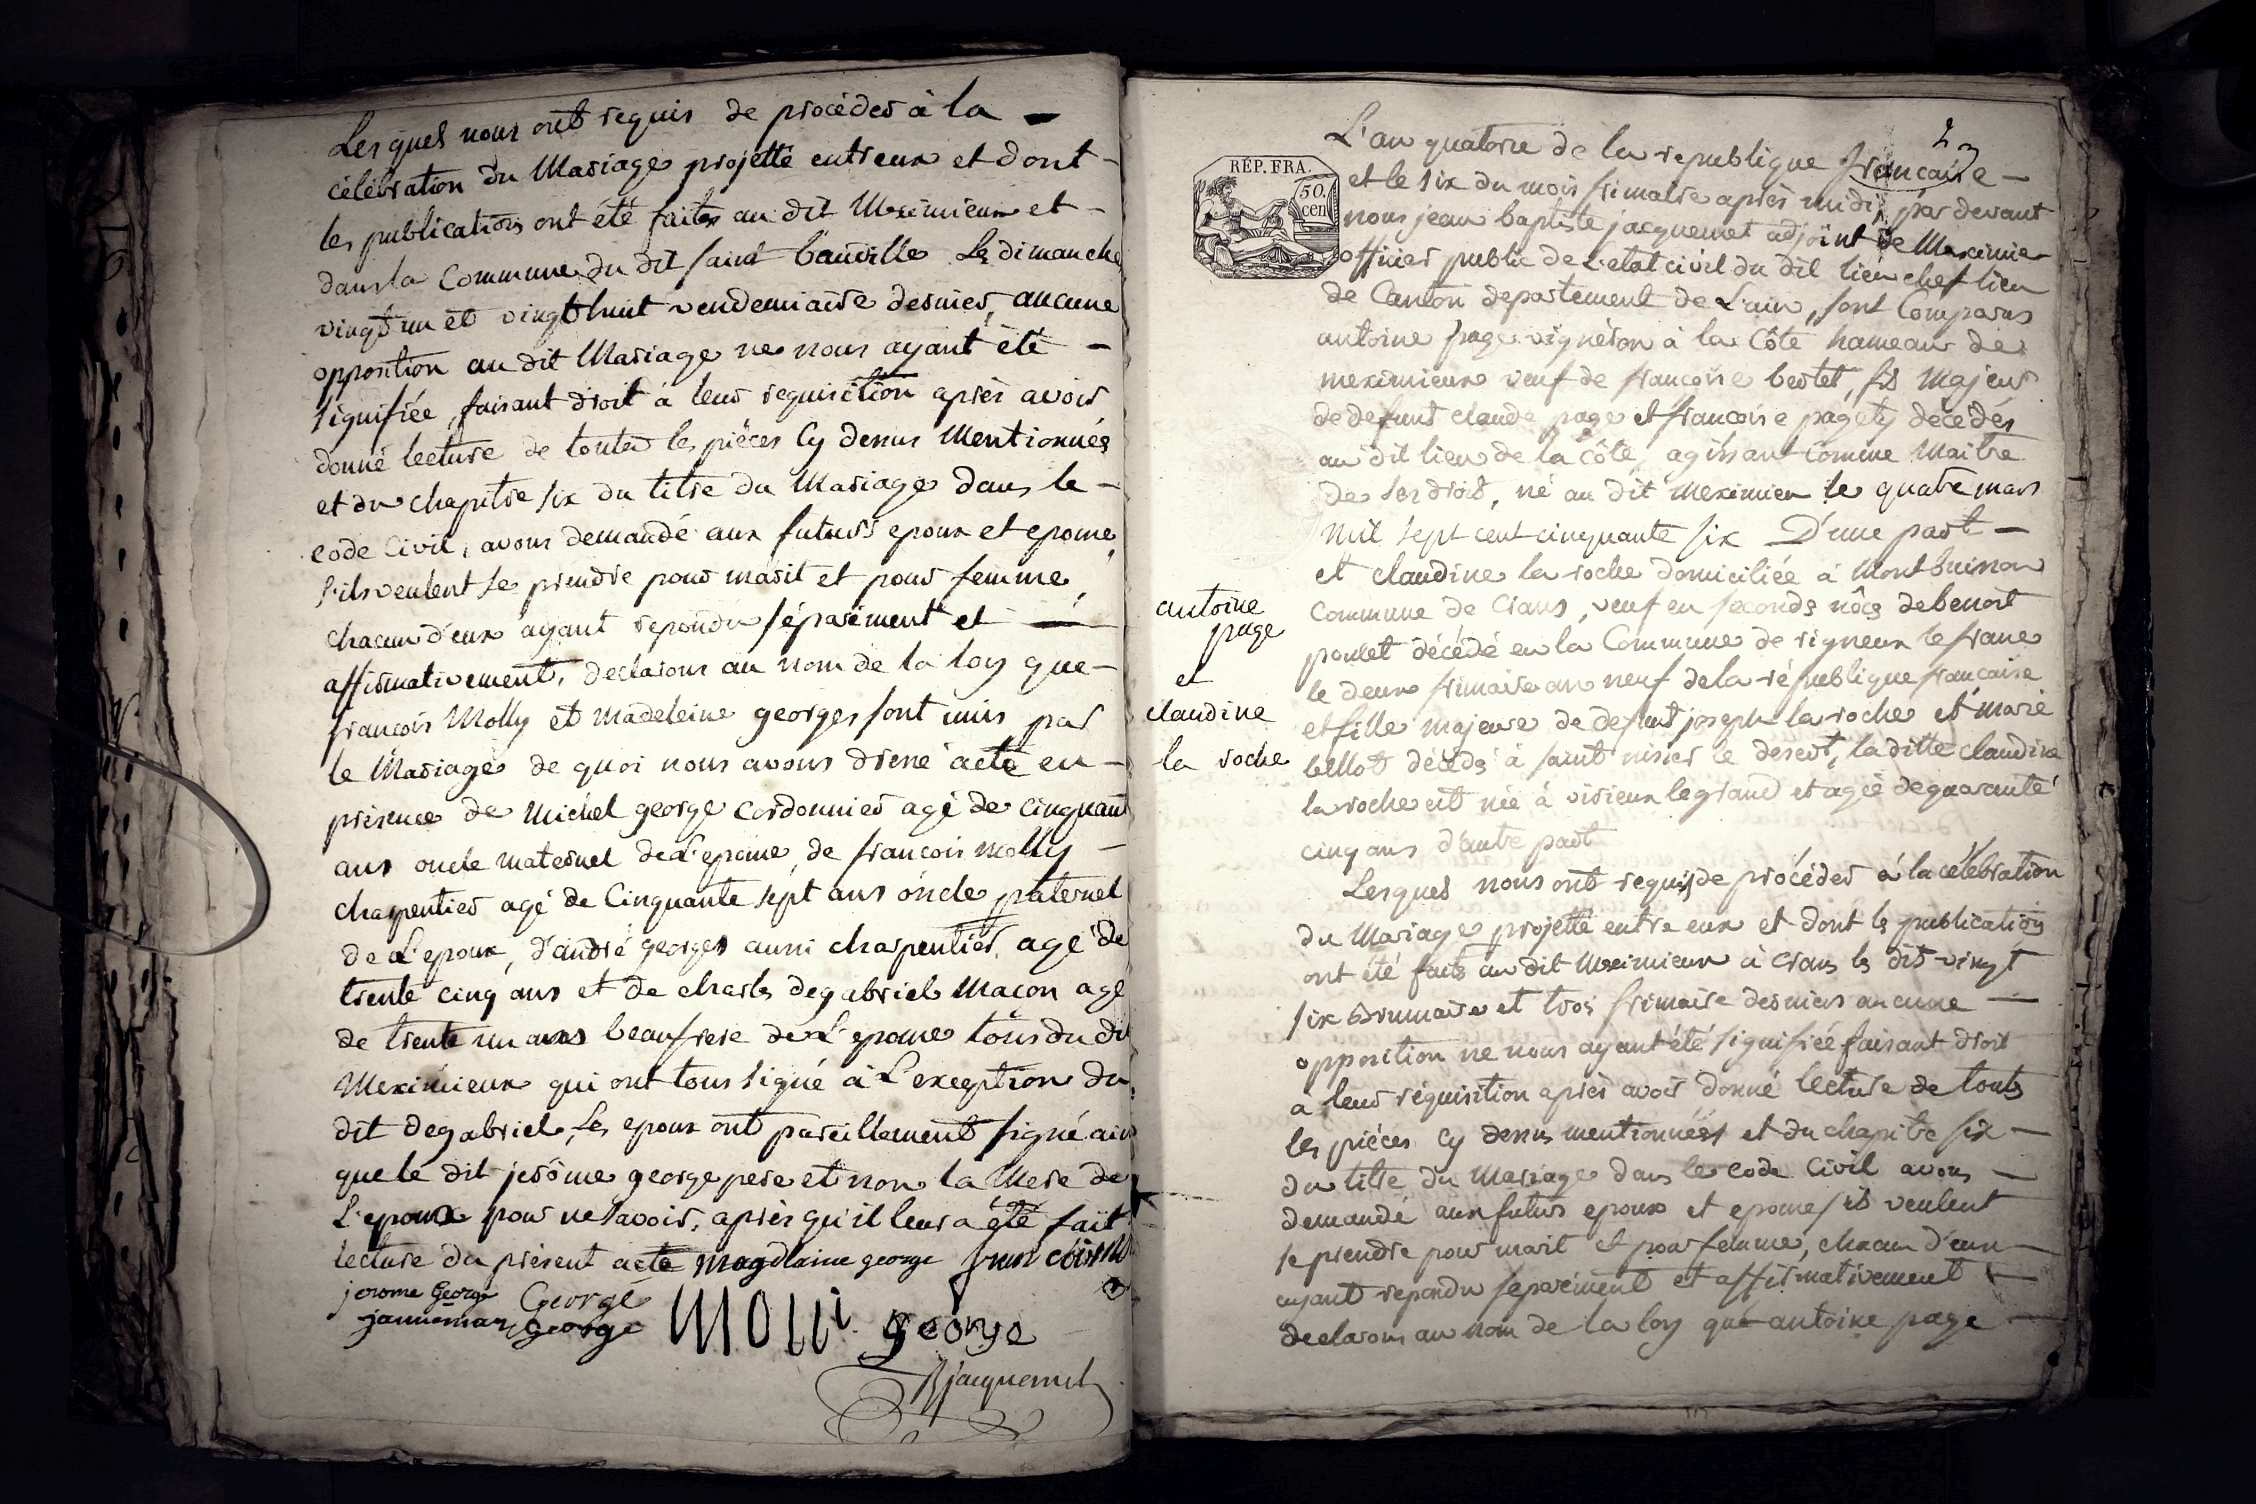 Lesquels nous ont requis de procéder à la
célébration du Mariage projetté entreux et dont
les publications ont été faites au dit Meximieux et
dans la Commune du dit saint Le dimanche
vingt un et vingt huit vendemiaire dernier, aucune
opposition au dit Mariage ne nous ayant été
signifiée, faisant droit à leur requisition après avoir
donné lecture de toutes les pièces Cy dessus Mentionnées
et du chapitre six du titre du Mariage dans le
code Civil, avons demandé aux futurs epoux et epouse
s'ils veulent se prendre pour marit et pour femme,
chacun d'eux ayant repondu séparément et
affirmativement, declarons au nom de la loy que
françois Molly et Madeleine george sont unis par
le Mariage de quoi nous avons dressé acte en
présence de Michel george Cordonnier agé de cinquant
ans oncle maternel de L'epouse, de françois Molly
charpentier agé de Cinquante sept ans oncle paternel
de L'epoux, d'andré george aussi charpentier, agé de
trente cinq ans et de charles degabriel Maçon agé
de trente un ans beaufrere de L'epouse tous du dit
Meximieux qui ont tous signé à L'exception du
dit degabriel, Les epoux ont pareillement signé ains
que le dit jerôme george pere et non la Mere de
L'epoux pour ne savoir, après qu'il leur a été fait
lecture du présent acte magdlaine george
jerome George George Molli george
george
Bjacquemet
23
L'an quatorze de la republique française
RÉP. FRA.
50.
cen
et le six du mois frimaire après midi, par devant
nous jean baptiste jacquemet adjoint de Meximie
officier public de L'etat civil du dit lieu chef lieu
de Canton departement de L'ain, sont Comparus
antoine page vigneron à la Côte hameau de
meximieux veuf de françoise bertet, fils Majeur
de defunt claude page et françoise pagety décédés
au dit lieu de la Côte, agissant Comme Maitre
de ses droits, né au dit Meximieu le quatre mars
Mil sept cent cinquante six D'une part
et claudine la roche domiciliée à Montbuisson
Commune de Crans, veuf en seconds nôces de benoit
poulet décédé en la Commune de rigneux le franc
le deux frimaire an neuf de la république française
et fille majeure de defunt joseph la roche et marie
bellot décédé à saint nisier le desert, la ditte claudine
la roche est née à virieux le grand et agée de quarante
cinq ans d'autre part
antoine
page
et
claudine
la roche
Lesquels nous ont requis de procéder à la célébration
du Mariage projetté entre eux et dont les publications
ont été faits au dit Meximieux à Crans les dits vingt
six Brumaire et trois frimaire derniers aucune
opposition ne nous ayant été signifiée faisant droit
à leur réquisition après avoir donné lecture de touts
les pièces cy dessus mentionnées et du chapitre six
du titre du Mariage dans le code Civil avons
demandé aux futurs epoux et epouse s'ils veulent
se prendre pour marit et pour femme, chacun d'eux
ayant repondu separément et affirmativement
declarons au nom de la loy que antoine page